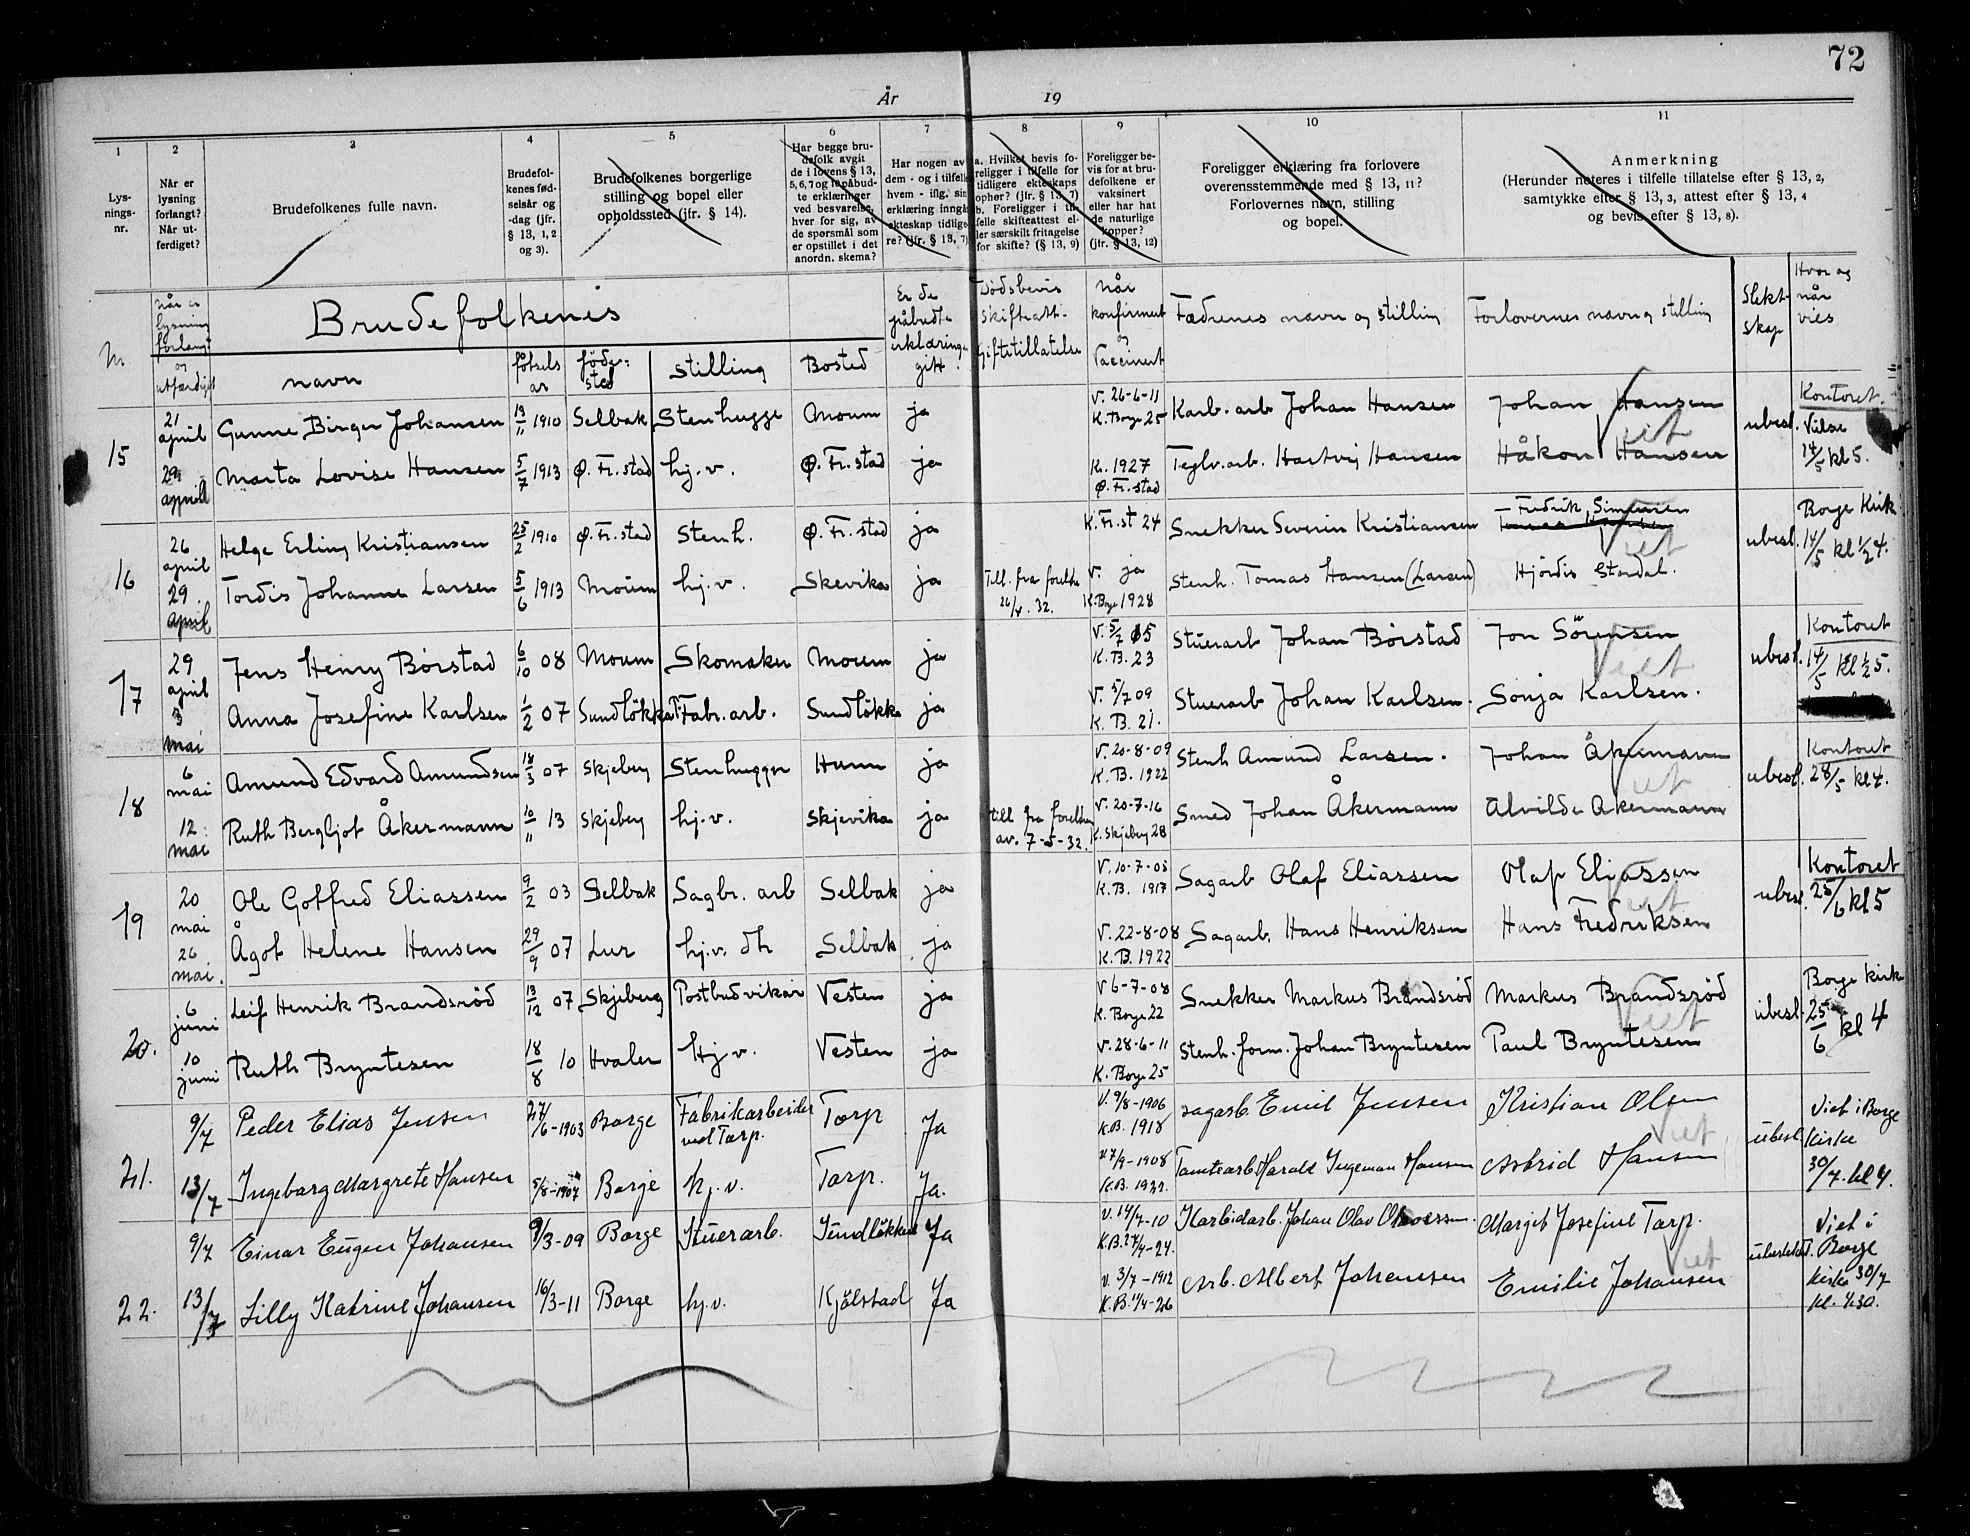 72
År 19
1 2 3 4 5 6 7 8 9 10 11
Lys-
nings-
nr.
Når er
lysning
forlangt?
Når ut-
ferdiget?
Brudefolkenes fulle navn.
Brudefol-
kenes fød-
selsår og
-dag (jfr.
§ 13, 1, 2
og 3).
Brudefolkenes borgerlige
stilling og bopel eller
opholdssted (jfr. § 14).
Har begge bru-
defolk avgit
de i lovens § 13,
5, 6, 7 og 10 påbud-
te erklæringer
ved besvarelse,
hver for sig, av
de spørsmål som
er opstillet i det
anordn. skema?
Har nogen av
dem - og i tilfelle
hvem - iflg. sin
erklæring inngå
ekteskap tidlige-
re? (jfr. § 13, 7)
a. Hvilket bevis fo-
religger i tilfelle for
tidligere ekteskaps
ophør? (jfr. § 13, 7)
b. Foreligger i til-
felle skifteattest el-
ler særskilt fritagelse
for skifte? (§ 13, 9)
Foreligger be-
vis for at bru-
defolkene er
vaksinert
eller har hat
de naturlige
kopper?
(jfr. § 13, 12)
Foreligger erklæring fra forlovere
overensstemmende med § 13, 11?
Forlovernes navn, stilling
og bopel.
Anmerkning
(Herunder noteres i tilfelle tillatelse efter § 13, 2,
samtykke efter § 13, 3, attest efter § 13, 4
og bevis efter § 13, 8).
Nr.
når er
lysning
forlangt
og
utfærdiget
Brudefolkenes
navn
fötsels
ar
föde-
sted
stilling
Bosted
Er de
påbudte
erklæringer
gitt.
Dødsbevis
Skifteatt-
Giftetillatelse
når
konfirmert
og
Vaccinert
Fædrenes navn og stilling
Forlovernes navn og stilling
Slekt-
skap
Hvor og
når
vies
15
21 april Gunne Birger Johansen 13/11 1910 Selbak Stenhugge Moum ja V. 26-6-11 K. Borge 25 Karb. arb Johan Hansen Johan Hansen ubesl. Kontoret.
Viet
Vilse
29 april Marta Lovise Hansen 5/7 1913 Ø. Fr. stad hj. v. Ø. Fr. stad ja K. 1927 Ø. Fr. stad Teglv. arb. Hartvig Hansen Håkon Hansen 14/5 kl 5.
16
26 april Helge Erling Kristiansen 25/2 1910 Ø. Fr. stad Stenh. Ø. Fr. stad ja K. Fr. st 24 Snekker Severin Kristiansen Fredrik Simensen ubesl. Borge Kirk
Viet
29. april Tordis Johanne Larsen 5/6 1913 Moum hj. v. Skevika ja Till. fra foreldre 26/4. 32. V. ja K. Borge 1928 Stenh. Tomas Hansen (Larsen) Hjördis Stordal. 14/5 kl 1/2 4.
17
29 april Jens Henry Börstad 6/10 08 Moum Skomaker Moum ja V. 5/7 05 K. B. 23 Stuerarb Johan Börstad Jon Sörensen ubesl. Kontoret
Viet
3 mai Anna Josefine Karlsen 1/2 07 Sundlökka Fabr. arb. Sundlökka ja V. 5/7 09 K. B. 21. Stuerarb Johan Karlsen. Sonja Karlsen. 14/5 kl 1/2 5.
18
6 mai Amund Edvard Amundsen 18/3 07 Skjeberg Stenhugger Hunn ja V. 20-8-09 K. B. 1922 Stenh Amund Larsen. Johan Åkermann ubesl. Kontoret
Viet
12 mai Ruth Bergljot Åkermann 10/11 13 Skjeberg hj. v. Skjevika ja till fra foreldre av. 7-5-32. V. 20-7-16 K. Skjeberg 28 Smed Johan Åkermann Alvilde Akermann 28/5 kl 4.
19
20 mai Ole Gotfred Eliassen 9/2 03 Selbak Sagbr. arb Selbak ja V. 10-7-03 K. B. 1917 Sagarb Olaf Eliassen Olaf Eliassen ubesl. Kontoret
Viet
26 mai. Ågot Helene Hansen 29/9 07 Lur hj. v. dh Selbak ja V. 22-8-08 K. B. 1922 Sagarb. Hans Henriksen Hans Fredriksen 25/6 kl 5
20.
6 juni Leif Henrik Brandsröd 13/12 07 Skjeberg Postbudvikar Vesten ja V 6-7-08 K. Borge 22 Snekker Markus Brandsröd Markus Brandsröd ubesl. Borge Kirke
Viet
10 juni Ruth Bryntesen 18/8 10 Hvaler Hj. v. Vesten ja V. 28-6-11 K. Borge 25 Stenh. form. Johan Bryntesen Paul Bryntesen 25/6 kl 4
21.
9/7 Peder Elias Jensen 27/6-1903 Borge Fabrikarbeider ved Torp. Torp Ja V. 9/8-1906 K. B. 1918 Sagarb. Emil Jensen Kristian Olsen ubesl Viet i Borge
Viet
13/7 Ingeborg Margrete Hansen 5/8-1907 Borge hj. v. Torp. Ja. 7/9-1908 K. B. Tomtearb. Harald Ingeman Hansen Astrid Hansen kirke 30/7. kl 4.
22.
9/7 Einar Eugen Johansen 9/3-09 Borge Stuerarb. Sundlökka Ja V. 14/7-10 K. B. 27/4-24. Karbidarb. Johan Olav Margit Josefine Torp. ubeslektet. Viet i Borge
Viet
13/7 Lilly Katrine Johansen 16/3-11 Borge hj. v. Kjölstad Ja V. 3/7-1912 K. B. 11/4-26 Arb. Albert Johansen Emilie Johansen kirke 30/7 kl. 4.30.